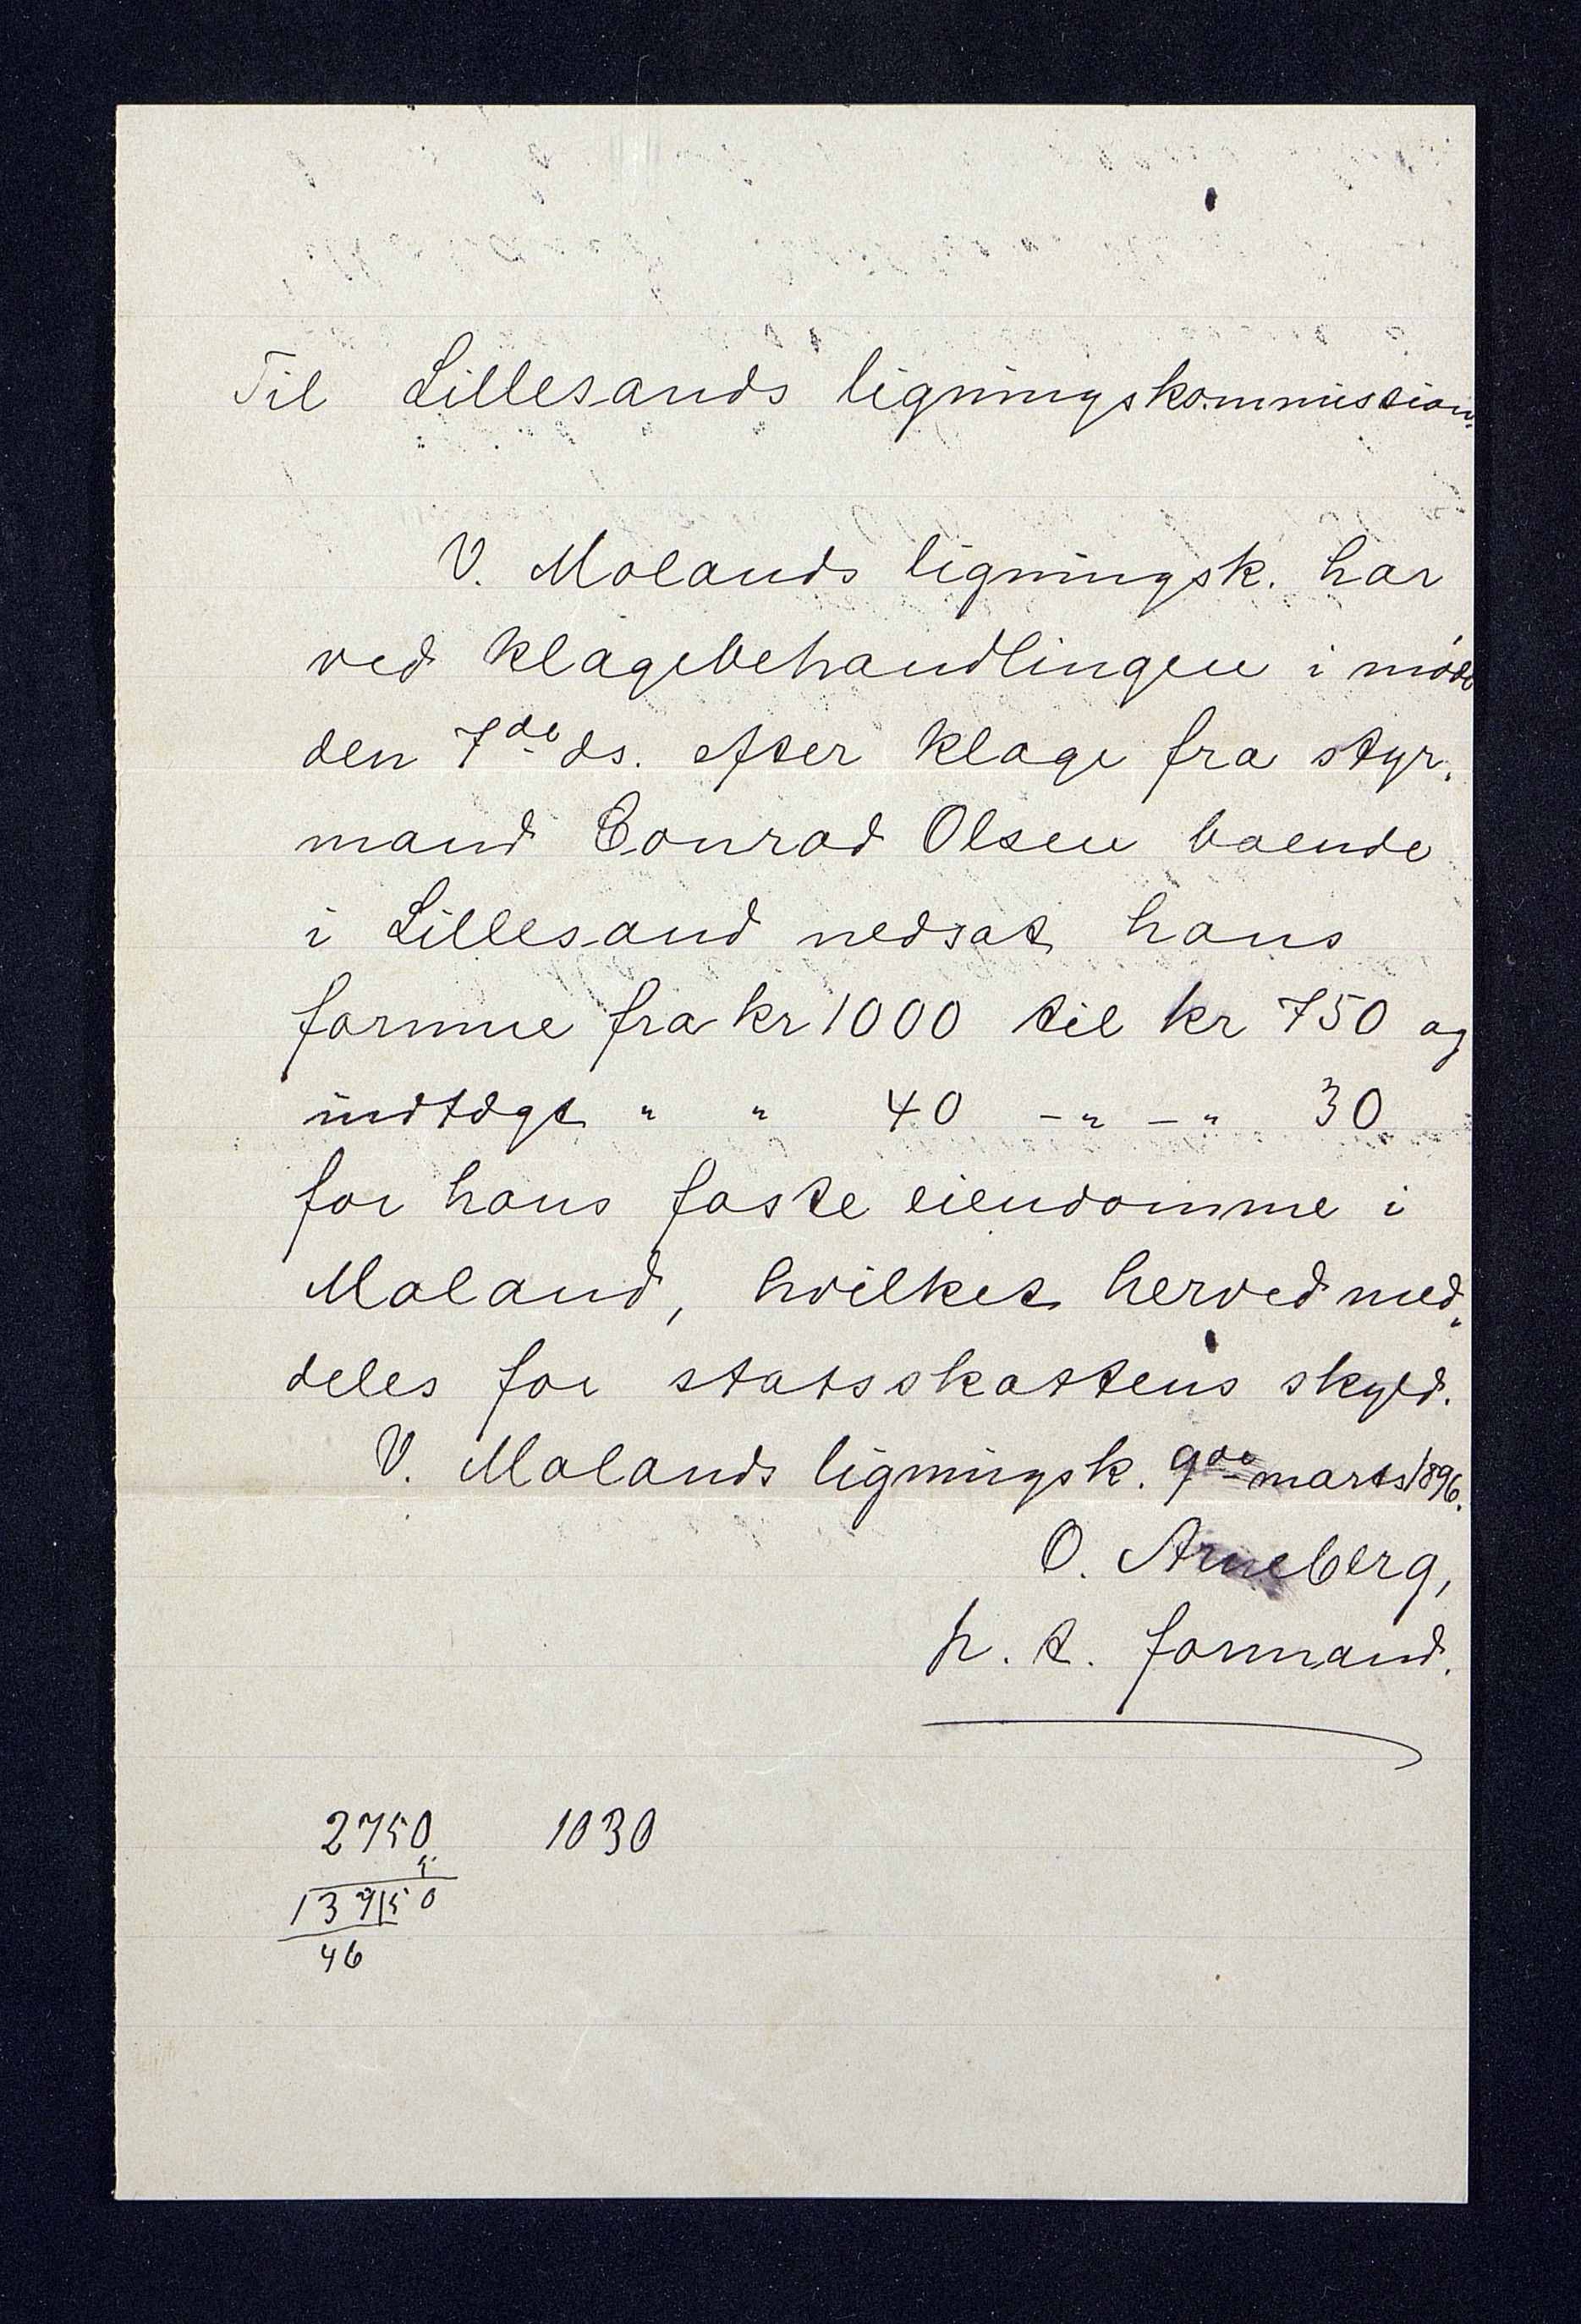 Til Lillesands ligningskommission.
V. Molands ligningsk. har
ved klagebehandlingen i møde
den 7de ds. efter klage fra styr-
mand Conrad Olsen boende
i Lillesand nedsat hans
formue fra kr 1000 til kr 750 og
indtægt " " 40 -"- " 30
for hans faste eiendomme i
Moland, hvilket herved med-
deles for statsskattens skyld.
V. Molands ligningsk. 9de marts 1896.
O. Arneberg,
p. t. formand.
2750 1030
5
137|50
46